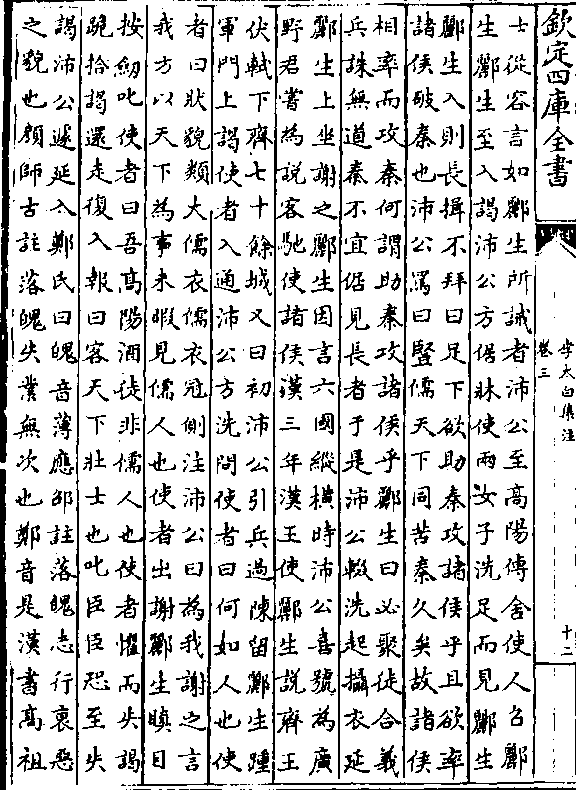 欽定四庫全書
李太白集注
卷三
十二
士從容言如酈生所誡者沛公至高陽傳舍使人召酈
生酈生至入謁沛公方倨牀使兩女子洗足而見酈生
酈生入則長揖不拜曰足下欲助秦攻諸侯乎且欲率
諸侯破秦也沛公罵曰豎儒天下同苦秦久矣故諸侯
相率而攻秦何謂助秦攻諸侯乎酈生曰必聚徒合義
兵誅無道秦不宜倨見長者于是沛公輟洗起攝衣延
酈生上坐謝之酈生因言六國縱橫時沛公喜號為廣
野君嘗為說客馳使諸侯漢三年漢王使酈生說齊王
伏軾下齊七十餘城又曰初沛公引兵過陳留酈生踵
軍門上謁使者入通沛公方洗問使者曰何如人也使
者曰狀貌類大儒衣儒衣冠側注沛公曰為我謝之言
我方以天下為事未暇見儒人也使者出謝酈生瞋目
按劒叱使者曰吾髙陽酒徒非儒人也使者懼而失謁
跪拾謁還走復入報曰客天下壯士也叱臣臣恐至失
謁沛公遽延入鄭氏曰魄音薄應邵註落魄志行衰惡
之貌也顔師古註落魄失業無次也鄭音是漢書髙祖